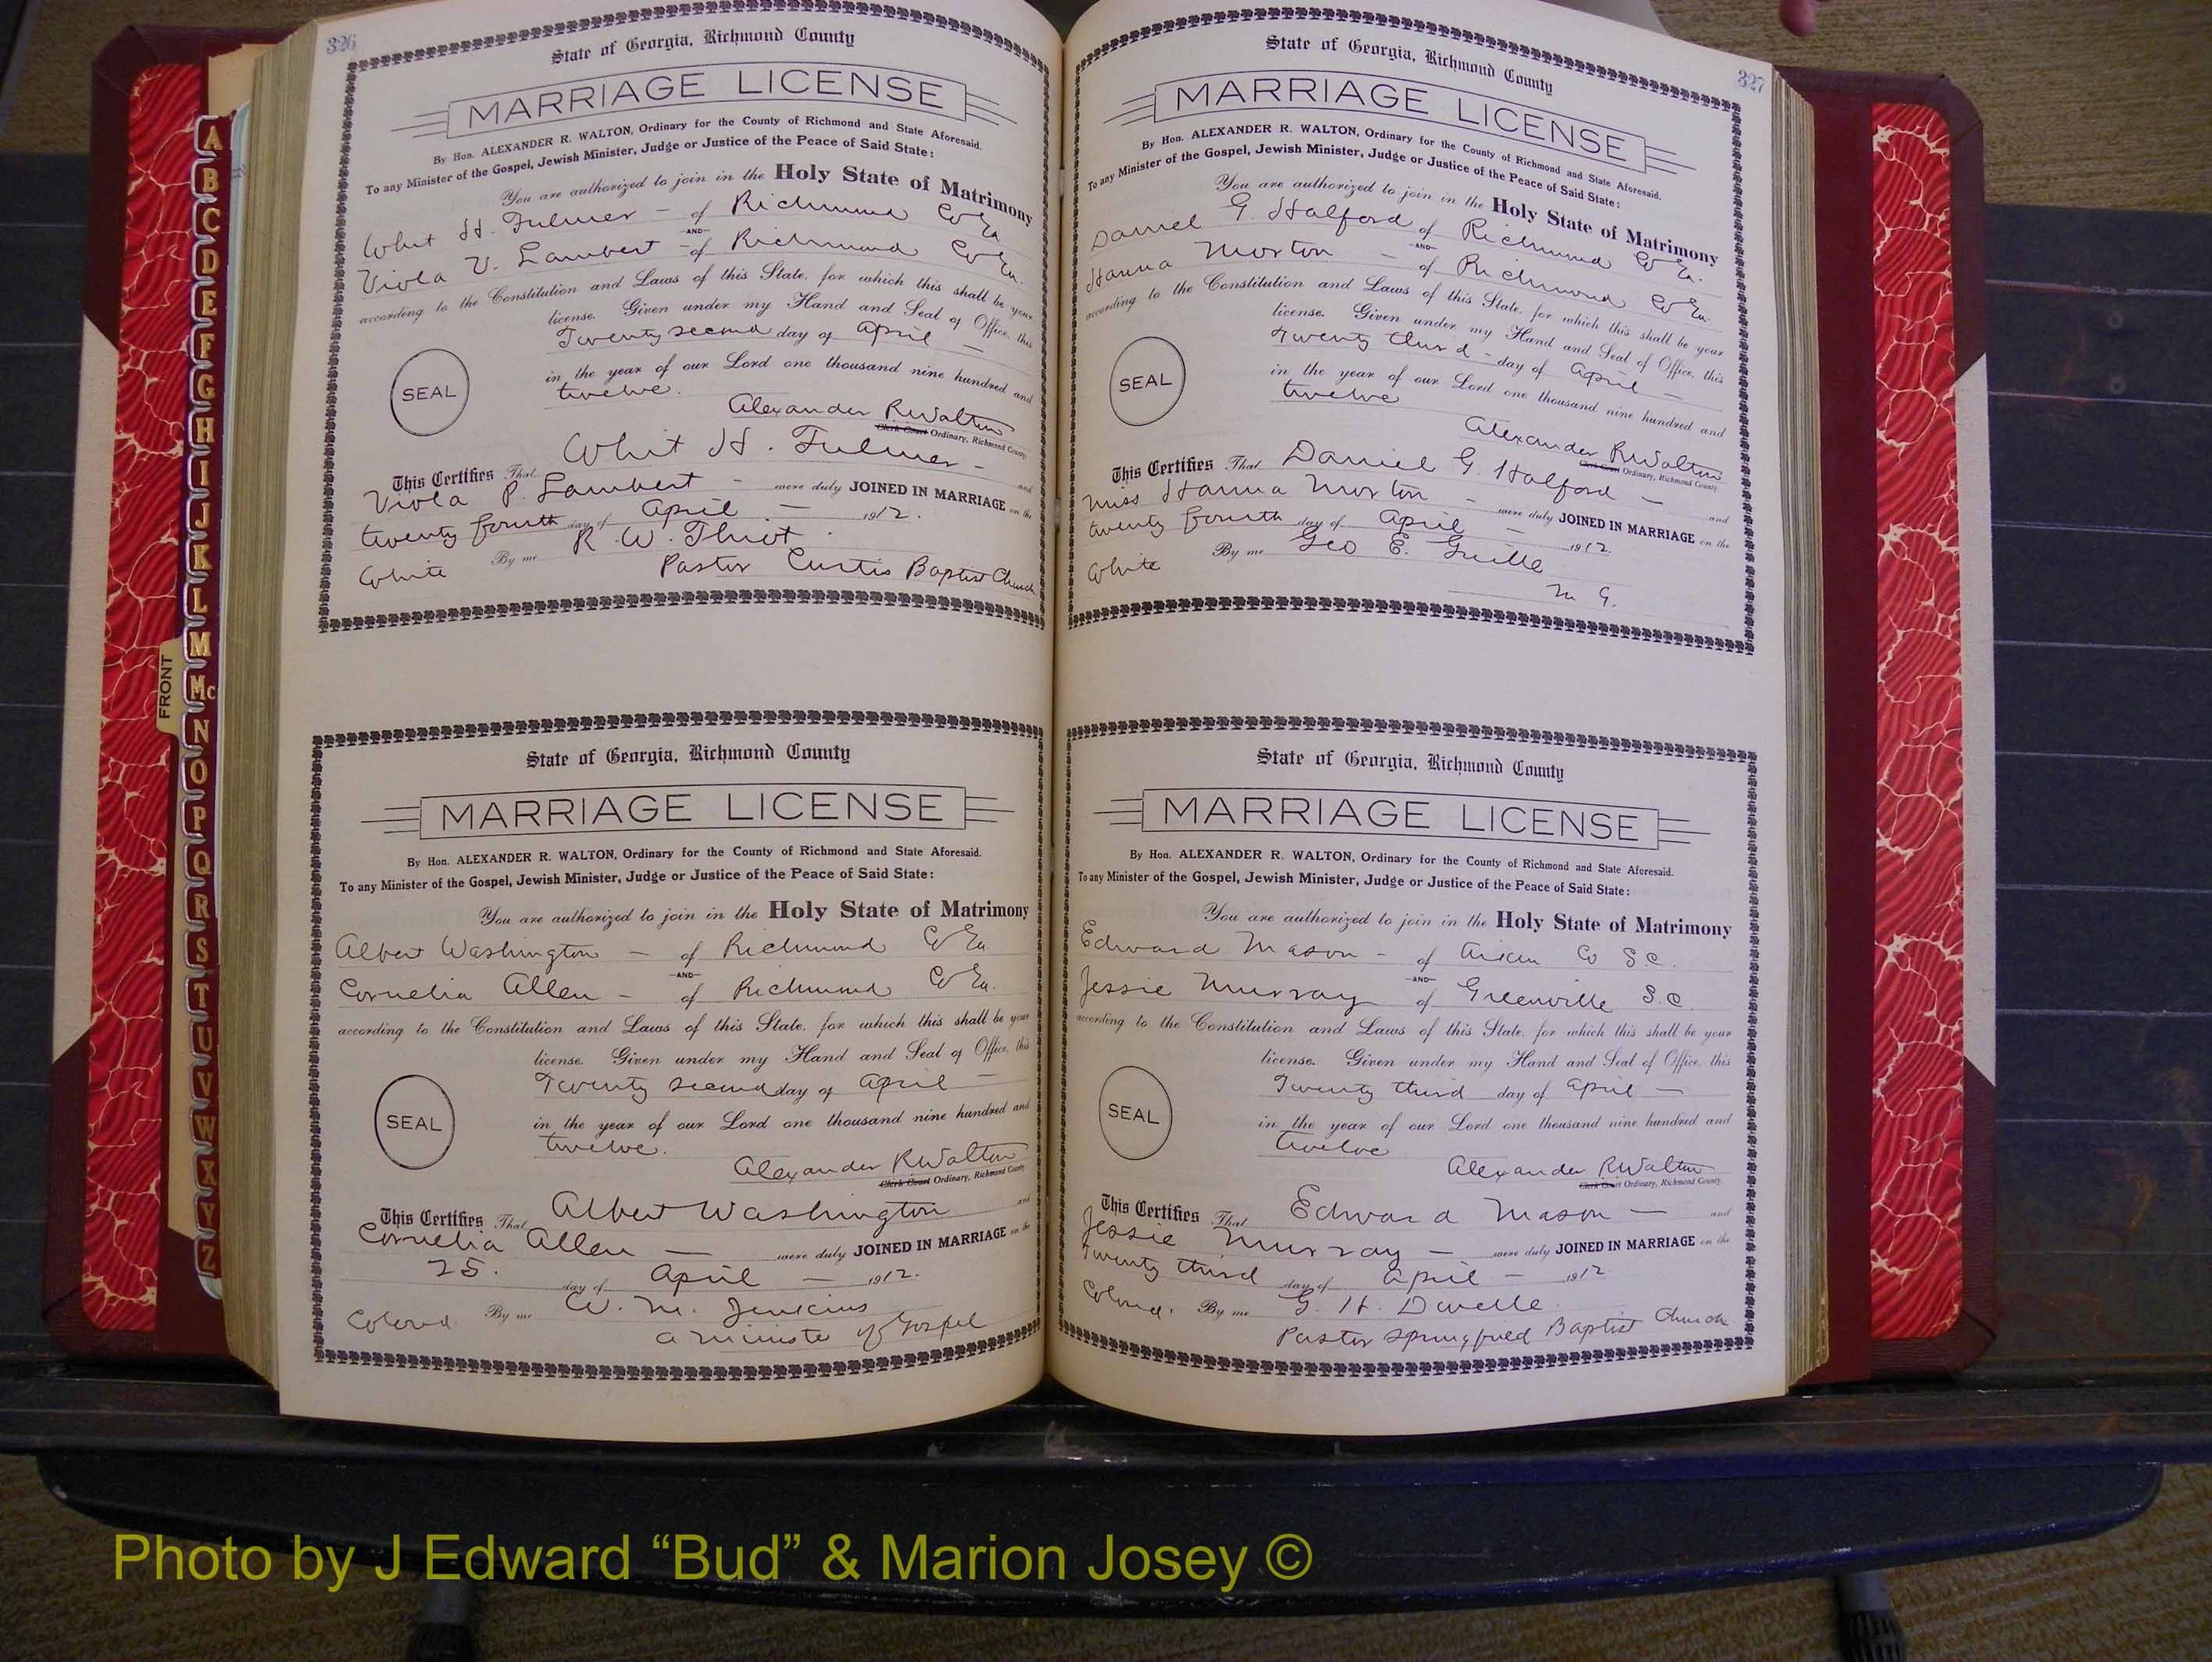 326
State of Georgia, Richmond County
MARRIAGE LICENSE
By Hon. ALEXANDER R. WALTON, Ordinary for the County of Richmond and State Aforesaid.
To any Minister of the Gospel, Jewish Minister, Judge or Justice of the Peace of Said State:
You are authorized to join in the Holy State of Matrimony
Whit H. Fulmer - of Richmond Co Ga
AND
Viola V. Lambert - of Richmond Co Ga.
according to the Constitution and Laws of this State, for which this shall be your
license. Given under my Hand and Seal of Office, this
Twenty second day of April -
in the year of our Lord one thousand nine hundred and
twelve.
SEAL
Alexander R Walton
Clerk Court Ordinary, Richmond County
This Certifies That Whit H. Fulmer - and
Viola P. Lambert - were duly JOINED IN MARRIAGE on the
twenty fourth day of April - 1912.
White By me R. W. Thiot.
Pastor Curtis Baptist Church
State of Georgia, Richmond County
MARRIAGE LICENSE
By Hon. ALEXANDER R. WALTON, Ordinary for the County of Richmond and State Aforesaid.
To any Minister of the Gospel, Jewish Minister, Judge or Justice of the Peace of Said State:
You are authorized to join in the Holy State of Matrimony
Albert Washington - of Richmond Co Ga.
AND
Cornelia Allen - of Richmond Co Ga.
according to the Constitution and Laws of this State, for which this shall be your
license. Given under my Hand and Seal of Office, this
Twenty second day of April -
in the year of our Lord one thousand nine hundred and
twelve.
SEAL
Alexander R Walton
Clerk Court Ordinary, Richmond County
This Certifies That Albert Washington and
Cornelia Allen - were duly JOINED IN MARRIAGE on the
25. day of April - 1912.
Colored. By me W. M. Jenkins
a ministe of Gospel
327
State of Georgia, Richmond County
MARRIAGE LICENSE
By Hon. ALEXANDER R. WALTON, Ordinary for the County of Richmond and State Aforesaid.
To any Minister of the Gospel, Jewish Minister, Judge or Justice of the Peace of Said State:
You are authorized to join in the Holy State of Matrimony
Daniel G. Halford of Richmond Co Ga.
AND
Hanna Morton - of Richmond Co Ga
according to the Constitution and Laws of this State, for which this shall be your
license. Given under my Hand and Seal of Office, this
Twenty third - day of April -
in the year of our Lord one thousand nine hundred and
twelve
SEAL
Alexander R Walton
Clerk Court Ordinary, Richmond County
This Certifies That Daniel G. Halford - and
Miss Hanna Morton - were duly JOINED IN MARRIAGE on the
twenty fourth day of April - 1912.
White By me Geo E. Guille
M. G.
State of Georgia, Richmond County
MARRIAGE LICENSE
By Hon. ALEXANDER R. WALTON, Ordinary for the County of Richmond and State Aforesaid.
To any Minister of the Gospel, Jewish Minister, Judge or Justice of the Peace of Said State:
You are authorized to join in the Holy State of Matrimony
Edward Mason - of Aiken Co S.C.
AND
Jessie Murray of Greenville S.C
according to the Constitution and Laws of this State, for which this shall be your
license. Given under my Hand and Seal of Office, this
Twenty third day of April -
in the year of our Lord one thousand nine hundred and
twelve
SEAL
Alexander R Walton
Clerk Court Ordinary, Richmond County
This Certifies That Edward Mason - and
Jessie Murray - were duly JOINED IN MARRIAGE on the
Twenty third day of April - 1912
Colored. By me G. H. Dwelle.
Pastor Springfield Baptist Church
FRONT
A
B
C
D
E
F
G
H
I
J
K
L
M
Mc
N
O
P
Q
R
S
T
U
V
W
X
Y
Z
Photo by J Edward “Bud” & Marion Josey ©